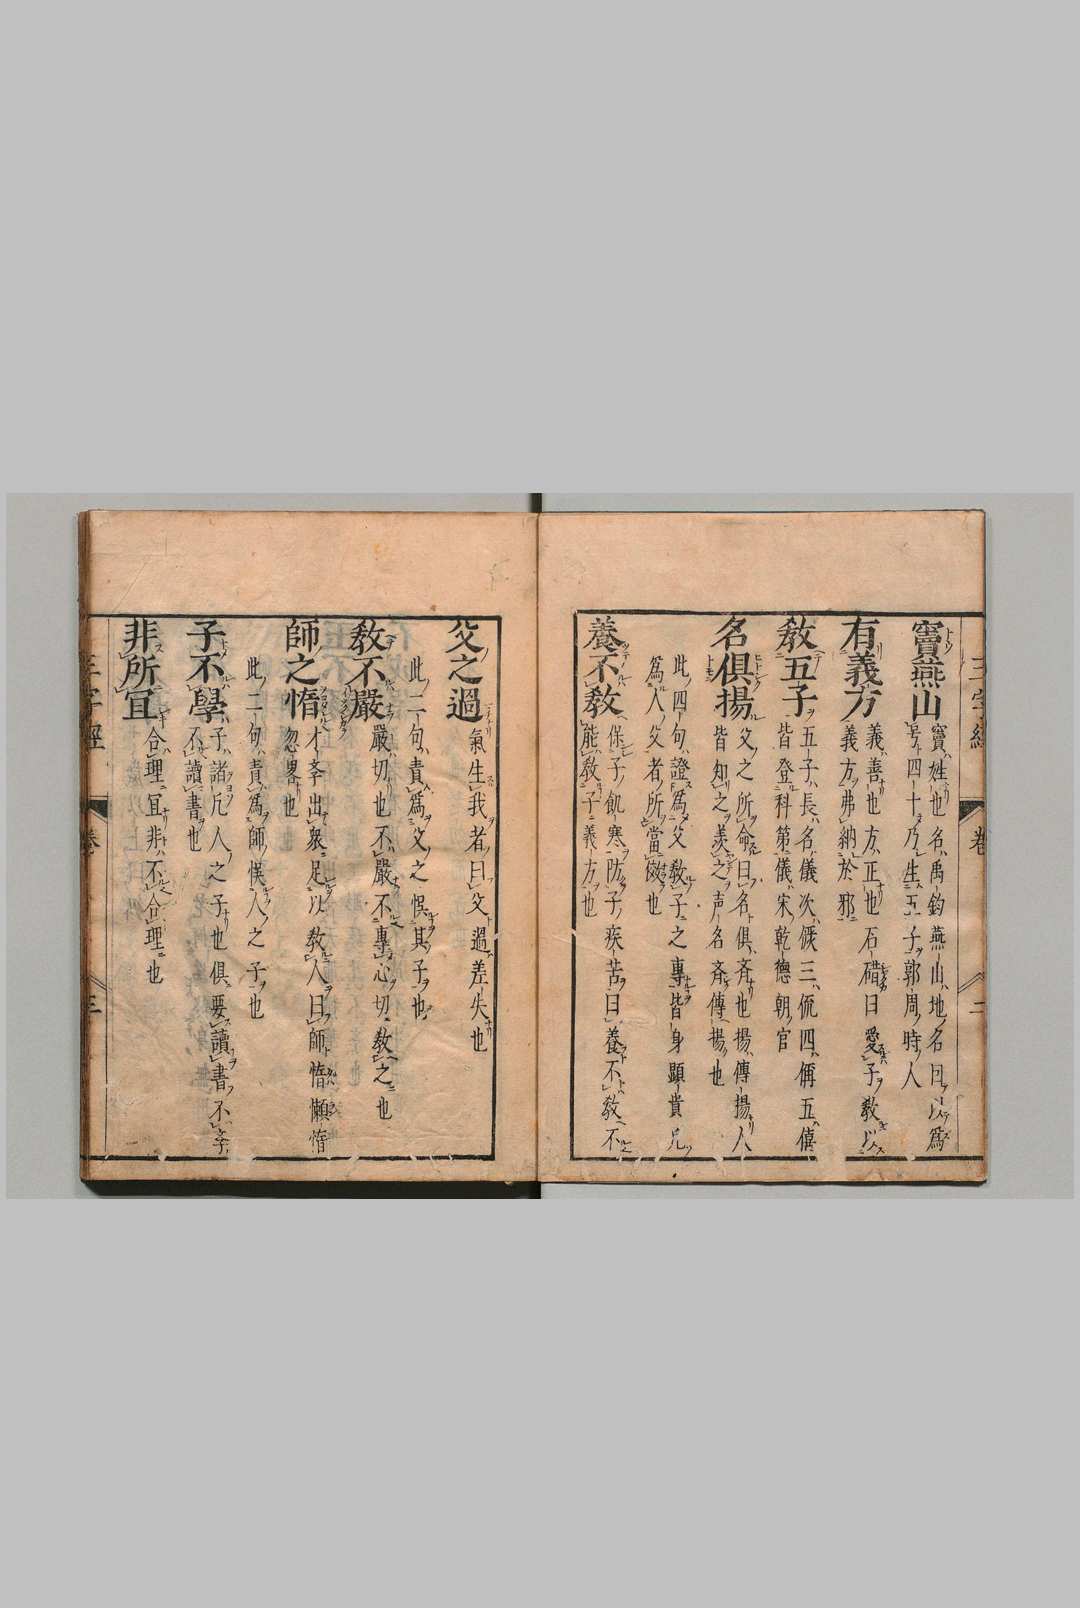 竇燕山
竇姓也名禹鈞燕山地名因以爲
号四十乃生五子郭周時人
有義方
義善也方正也石碏曰愛子敎以
義方弗納於邪
敎五子
五子長名儀次俟三侃四偁五僖
皆登科第儀宋乾德朝官
名俱揚
父之所命曰名俱斉也揚傳揚人
皆知之羨之声名斉傳揚也
此四句證爲父敎子之專皆身顕貴凡
爲人父者所當傚也
養不敎
保子飢寒防子疾苦曰養不敎不
能敎子義方也
三字經
卷
二
父之過
氣生我者曰父過差失也
此二句責爲父之悞其子也
敎不嚴
嚴切也不嚴不專心切敎之也
師之惰
才斉出衆足以敎人曰師惰懶惰
忽畧也
此二句責爲師悞人之子也
子不學
子諸凢人之子也俱要讀書不斈
不讀書也
非所宜
合理宜非不合理也
三字經
卷
三